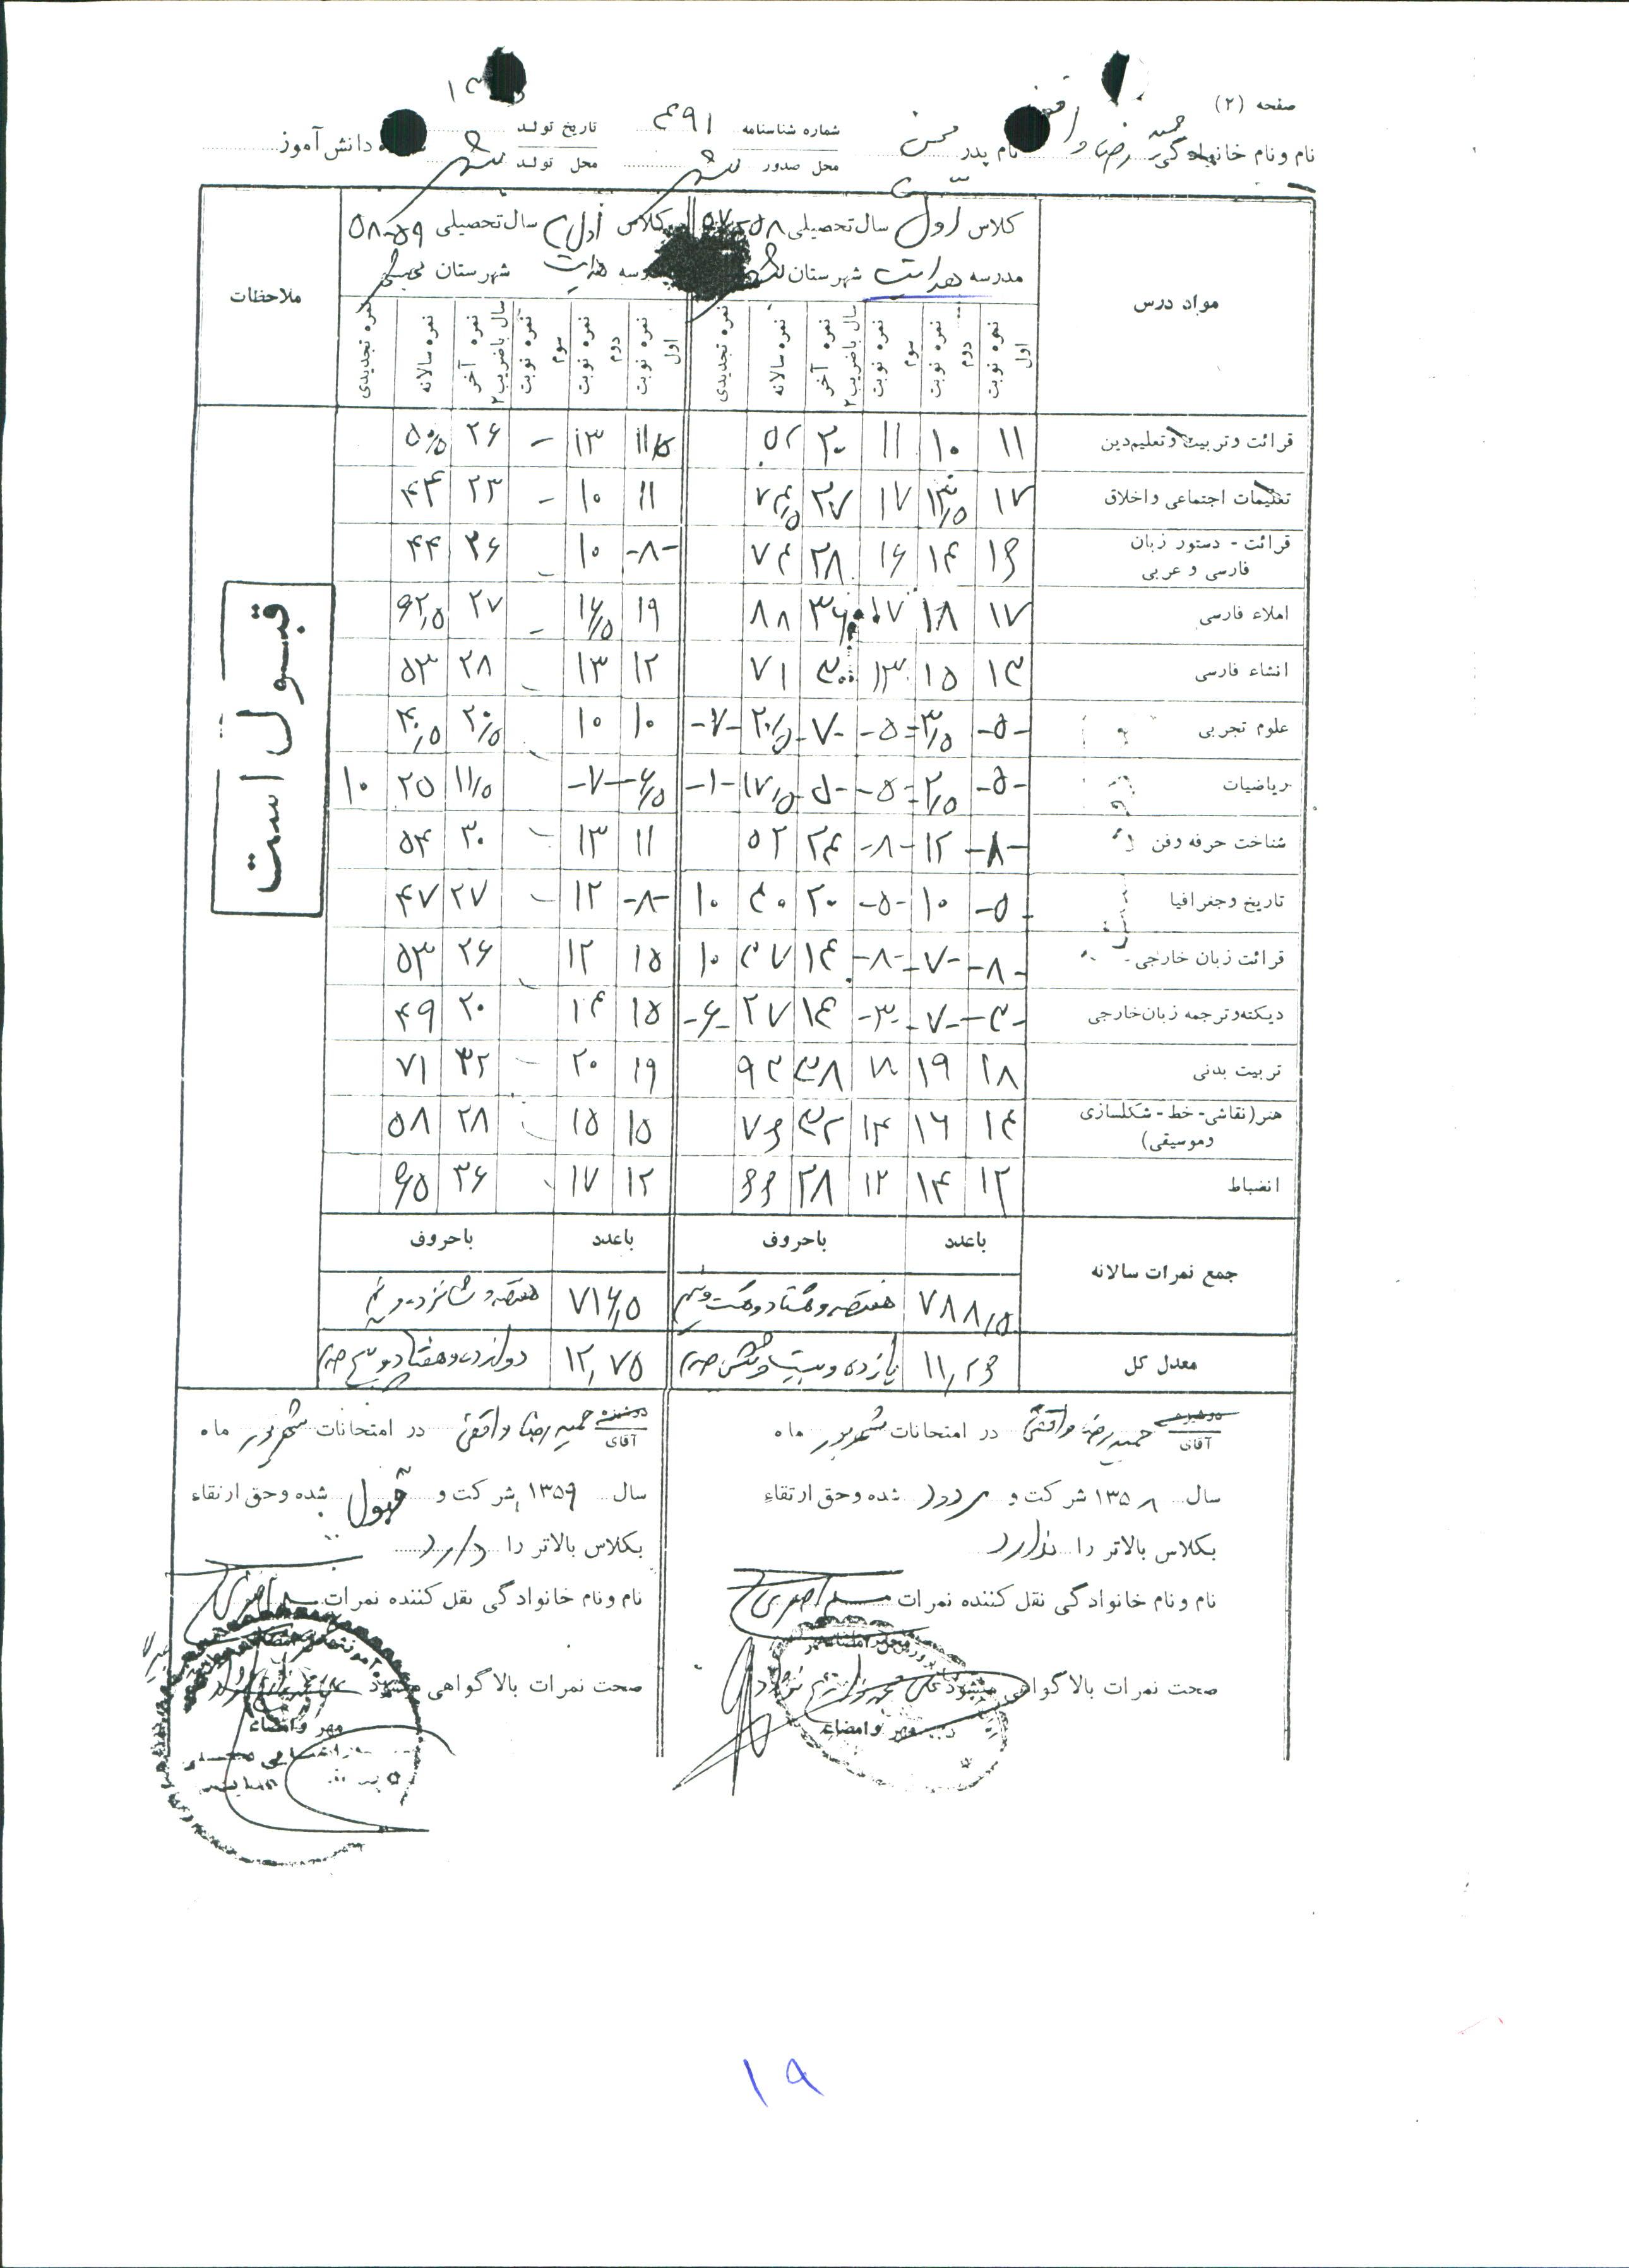 صفحه (۲)
نام و نام خانوادگی حمید رضا نام پدر محسن شماره شناسنامه ۴۹۱ تاریخ تولد
محل صدور محل تولد دانش آموز
مواد درس
کلاس اول سال تحصیلی ۵۸-۵۷
مدرسه هدایت شهرستان
کلاس اول سال تحصیلی ۵۹-۵۸
هدایت شهرستان
ملاحظات
نمره نوبت اول نمره نوبت دوم نمره نوبت سوم نمره آخر سال با ضریب ۲ نمره سالانه نمره تجدیدی نمره نوبت اول نمره نوبت دوم نمره نوبت سوم نمره آخر سال با ضریب ۲ نمره سالانه نمره تجدیدی
قرائت و تربیت و تعلیم دین ۱۱ ۱۰ ۱۱ ۲۰ ۵۲ ۱۱/۵ ۱۳ - ۲۶ ۵۰/۵
تعلیمات اجتماعی و اخلاق ۱۷ ۱۳/۵ ۱۷ ۲۷ ۷۴/۵ ۱۱ ۱۰ - ۲۳ ۴۴
قرائت - دستور زبان فارسی و عربی ۱۶ ۱۴ ۱۶ ۲۸ ۷۴ -۸- ۱۰ - ۲۶ ۴۴
املاء فارسی ۱۷ ۱۸ ۱۷ ۳۶ ۸۸ ۱۹ ۱۶/۵ - ۲۷ ۶۲/۵
انشاء فارسی ۱۳ ۱۵ ۱۳ ۳۰ ۷۱ ۱۲ ۱۳ - ۲۸ ۵۳
علوم تجربی -۵- ۳/۵ -۵- -۷- ۲۰/۵ -۷- ۱۰ ۱۰ ۲۰/۵ ۴۰/۵
ریاضیات -۵- ۲/۵ -۵- -۵- ۱۷/۵ -۱- -۶/۵ -۷- ۱۱/۵ ۲۵ ۱۰
شناخت حرفه و فن -۸- ۱۲ -۸- ۲۴ ۵۲ ۱۱ ۱۳ - ۳۰ ۵۴
تاریخ و جغرافیا -۵- ۱۰ -۵- ۲۰ ۴۰ ۱۰ -۸- ۱۲ - ۲۷ ۴۷
قرائت زبان خارجی -۸- -۷- -۸- ۱۴ ۳۷ ۱۰ ۱۵ ۱۲ ۲۶ ۵۳
دیکته و ترجمه زبان خارجی -۳- -۷- -۳- ۱۴ ۲۷ -۶- ۱۵ ۱۴ ۲۰ ۴۹
تربیت بدنی ۱۸ ۱۹ ۱۸ ۳۸ ۹۳ ۱۹ ۲۰ - ۳۲ ۷۱
هنر (نقاشی - خط - شکلسازی و موسیقی) ۱۴ ۱۶ ۱۴ ۳۲ ۷۶ ۱۵ ۱۵ ۲۸ ۵۸
انضباط ۱۲ ۱۴ ۱۲ ۲۸ ۶۶ ۱۲ ۱۷ ۳۶ ۶۵
قبول است
جمع نمرات سالانه با عدد با حروف با عدد با حروف
۷۸۸/۵ هفتصد و هشتاد و هشت و نیم ۷۱۶/۵ هفتصد و شانزده و نیم
معدل کل ۱۱/۲۶ یازده و بیست و شش صدم ۱۲/۷۵ دوازده و هفتاد و پنج صدم
دوشیزه
آقای حمید رضا واقفی در امتحانات شهریور ماه
سال ۱۳۵۸ شرکت و مردود شده و حق ارتقاء
بکلاس بالاتر را ندارد
نام و نام خانوادگی نقل کننده نمرات
صحت نمرات بالا گواهی میشود
مهر و امضاء
دوشیزه
آقای حمید رضا واقفی در امتحانات شهریور ماه
سال ۱۳۵۹ شرکت و قبول شده و حق ارتقاء
بکلاس بالاتر را دارد
نام و نام خانوادگی نقل کننده نمرات
صحت نمرات بالا گواهی میشود
مهر و امضاء
۱۹